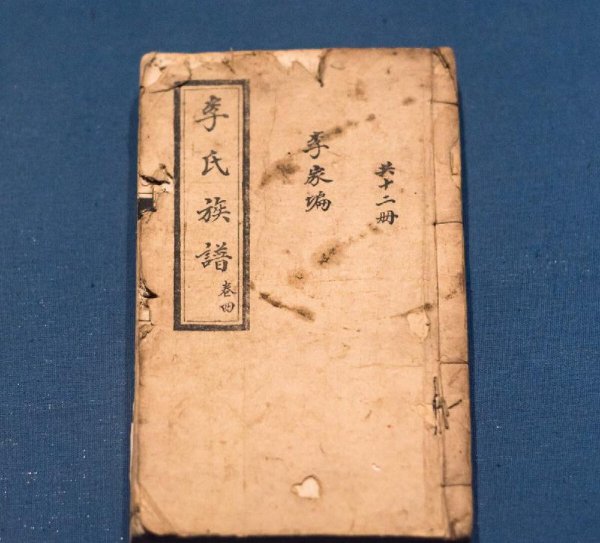 共十二册
李家
李氏族譜
卷四